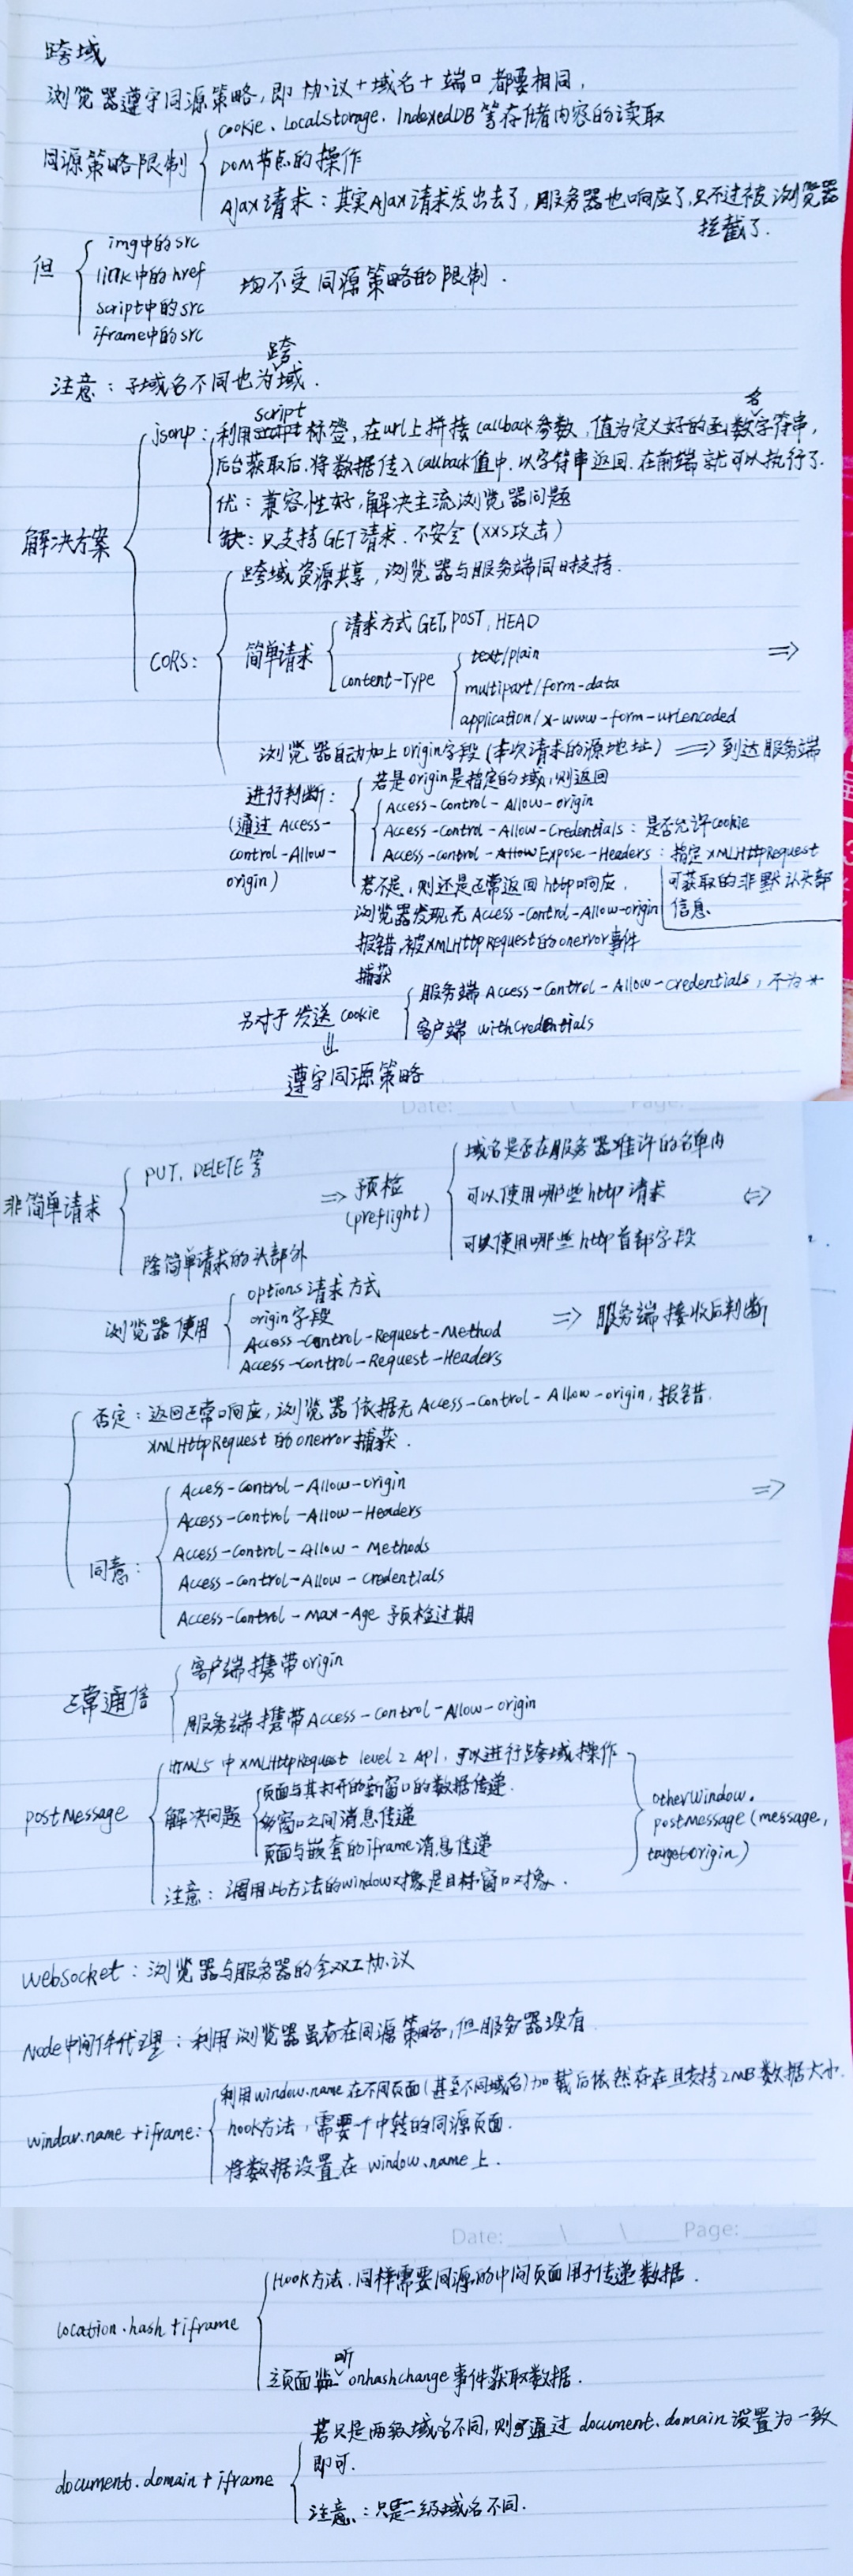 跨域
浏览器遵守同源策略,即 协议+域名+端口 都要相同,
cookie、LocalStorage、IndexedDB 等存储内容的读取
同源策略限制
DOM节点的操作
AJax请求:其实AJax请求发出去了,服务器也响应了,只不过被浏览器
拦截了.
img中的src
但
link中的href
均不受同源策略的限制.
script中的src
iframe中的src
注意:子域名不同也为跨域.
jsonp:利用script标签,在url上拼接callback参数,值为定义好的函数名字符串,
后台获取后,将数据传入callback值中.以字符串返回.在前端就可以执行了.
优:兼容性好,解决主流浏览器问题
缺:只支持GET请求.不安全(XXS攻击)
解决方案
跨域资源共享,浏览器与服务端同时支持.
请求方式GET,POST,HEAD
简单请求
CORS:
content-Type
text/plain
⇒
multipart/form-data
application/x-www-form-urlencoded
浏览器自动加上origin字段(本次请求的源地址)⇒到达服务端
进行判断:
(通过Access-
control-Allow-
origin)
若是origin是指定的域,则返回
Access-Control-Allow-origin
Access-Control-Allow-Credentials:是否允许cookie
Access-control-Expose-Headers:指定XMLHttpRequest
可获取的非默认头部
信息.
若不是,则还是正常返回http响应,
浏览器发现无Access-Control-Allow-origin
报错,被XMLHttpRequest的onerror事件
捕获
另对于发送cookie
服务端Access-Control-Allow-Credentials,不为*
客户端 withCredentials
⇓
遵守同源策略
Date: Page:
非简单请求
PUT、DELETE等
除简单请求的头部外
⇒预检
(preflight)
域名是否在服务器准许的名单内
可以使用哪些http请求
可以使用哪些http首部字段
⇔
浏览器使用
options请求方式
origin字段
Access-Control-Request-Method
Access-Control-Request-Headers
⇒ 服务端接收后判断
否定:返回正常响应,浏览器依据无Access-Control-Allow-origin,报错.
XMLHttpRequest的onerror捕获.
同意:
Access-Control-Allow-origin
Access-Control-Allow-Headers
Access-Control-Allow-Methods
Access-Control-Allow-Credentials
Access-Control-Max-Age 预检过期
⇒
正常通信
客户端携带origin
服务端携带Access-Control-Allow-origin
postMessage
HTML5中XMLHttpRequest level 2 API,可以进行跨域操作
解决问题
页面与其打开的新窗口的数据传递.
多窗口之间消息传递
页面与嵌套的iframe消息传递
otherWindow.
postMessage(message,
targetOrigin)
注意:调用此方法的window对象是目标窗口对象.
websocket:浏览器与服务器的全双工协议
Node中间件代理:利用浏览器虽存在同源策略,但服务器没有
window.name+iframe:
利用window.name在不同页面(甚至不同域名)加载后依然存在且支持2MB数据大小.
hook方法,需要一个中转的同源页面.
将数据设置在window.name上.
Date: Page:
location.hash+iframe
Hook方法.同样需要同源的中间页面用于传递数据.
主页面监听onhashchange事件获取数据.
document.domain+iframe
若只是两级域名不同,则可通过document.domain设置为一致
即可.
注意:只是二级域名不同.